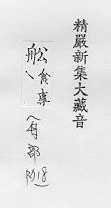 精嚴新集大藏音
舩
食專
(舟部